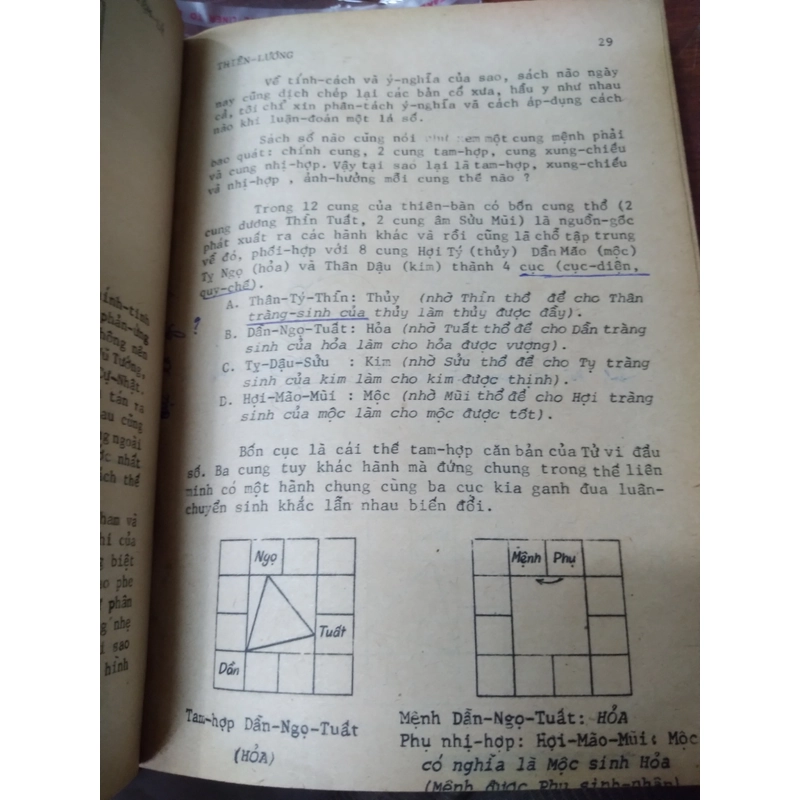 THIÊN-LƯƠNG
29
Về tính-cách và ý-nghĩa của sao, sách nào ngày
nay cũng dịch chép lại các bản cổ xưa, hầu y như nhau
cả, tôi chỉ xin phân-tách ý-nghĩa và cách áp-dụng cách
nào khi luận-đoán một lá số.
Sách số nào cũng nói xem một cung mệnh phải
bao quát: chính cung, 2 cung tam-hợp, cung xung-chiếu
và cung nhị-hợp. Vậy tại sao lại là tam-hợp, xung-chiếu
và nhị-hợp , ảnh-hưởng mỗi cung thế nào ?
Trong 12 cung của thiên-bàn có bốn cung thổ (2
cung dương Thìn Tuất, 2 cung âm Sửu Mùi) là nguồn-gốc
phát xuất ra các hành khác và rồi cũng là chỗ tập trung
về đó, phối-hợp với 8 cung Hợi Tý (thủy) Dần Mão (mộc)
Tỵ Ngọ (hỏa) và Thân Dậu (kim) thành 4 cục (cục-diện,
quy-chế).
A. Thân-Tý-Thìn: Thủy (nhờ Thìn thổ để cho Thân
tràng-sinh của thủy làm thủy được đầy).
?
B. Dần-Ngọ-Tuất: Hỏa (nhờ Tuất thổ để cho Dần tràng
sinh của hỏa làm cho hỏa được vượng).
C. Tỵ-Dậu-Sửu : Kim (nhờ Sửu thổ để cho Tỵ tràng
sinh của kim làm cho kim được thịnh).
D. Hợi-Mão-Mùi : Mộc (nhờ Mùi thổ để cho Hợi tràng
sinh của mộc làm cho mộc được tốt).
Bốn cục là cái thế tam-hợp căn bản của Tử vi đẩu
số. Ba cung tuy khác hành mà đứng chung trong thế liên
minh có một hành chung cùng ba cục kia ganh đua luân-
chuyển sinh khắc lẫn nhau biến đổi.
Ngọ
Tuất
Dần
Mệnh Phụ
Tam-hợp Dần-Ngọ-Tuất
(HỎA)
Mệnh Dần-Ngọ-Tuất: HỎA
Phụ nhị-hợp: Hợi-Mão-Mùi: Mộc
có nghĩa là Mộc sinh Hỏa
(Mệnh được Phụ sinh-nhập)
ính-tình
phản-ứng
hông nên
ủ Tướng,
Cự-Nhật.
tán ra
au cũng
g ngoài
ớc nhất
ích thế
ham và
hí của
g biệt
ao phe
phân
g nhẹ
i sao
hình